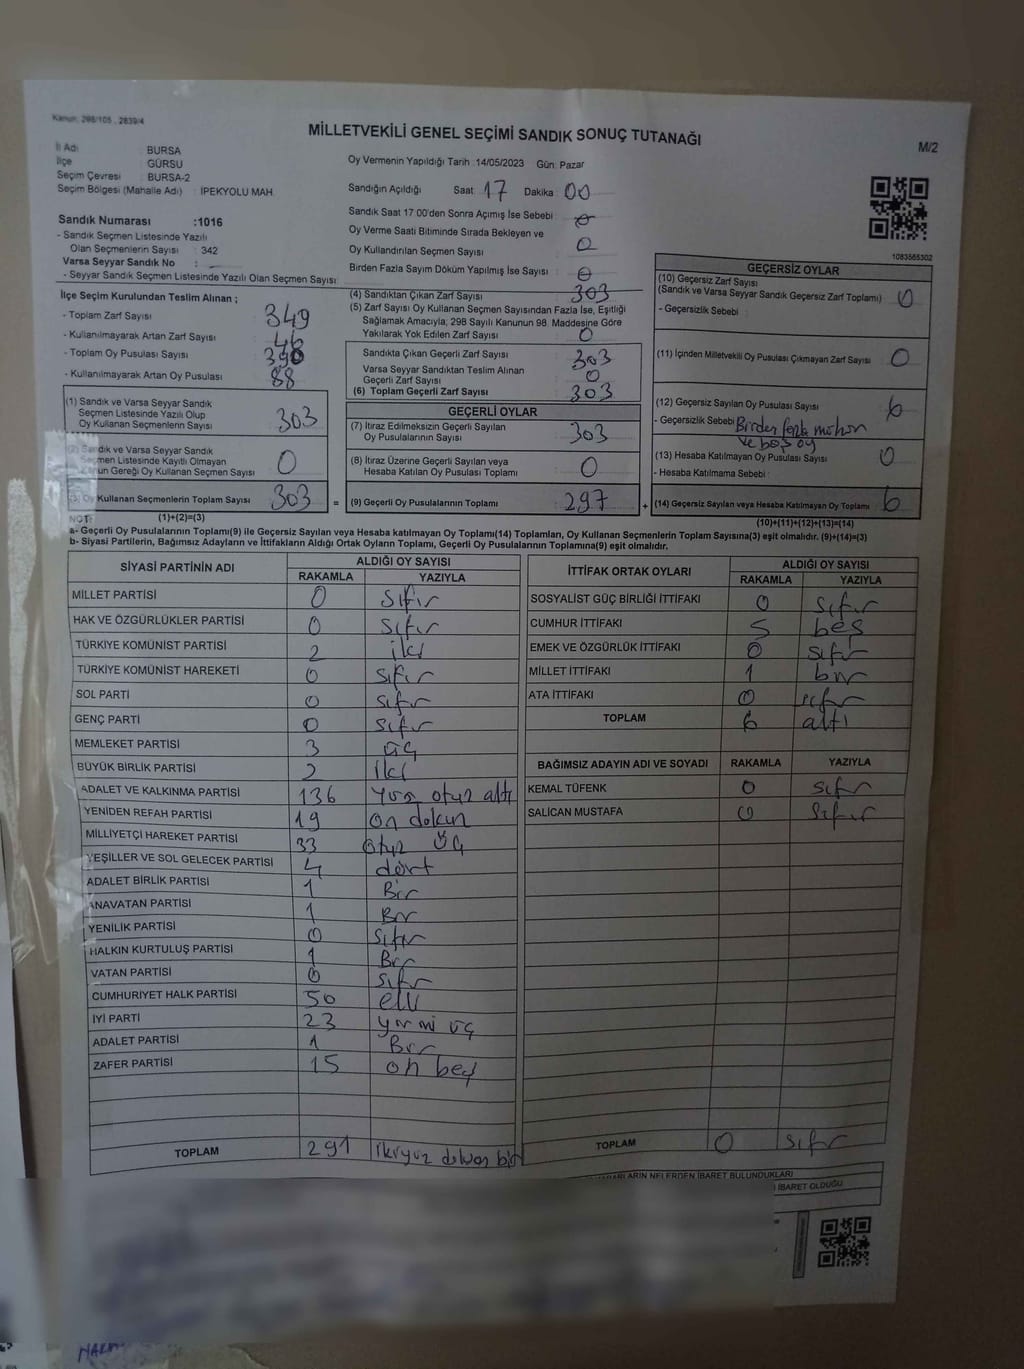 Kanun: 298/105 , 2839/4
MİLLETVEKİLİ GENEL SEÇİMİ SANDIK SONUÇ TUTANAĞI
M/2
İl Adı : BURSA
İlçe : GÜRSU
Seçim Çevresi : BURSA-2
Seçim Bölgesi (Mahalle Adı) : İPEKYOLU MAH.
Oy Vermenin Yapıldığı Tarih : 14/05/2023 Gün: Pazar
Sandığın Açıldığı Saat : 17 Dakika : 00
Sandık Saat 17:00'den Sonra Açımış İse Sebebi : 0
Oy Verme Saati Bitiminde Sırada Bekleyen ve
Oy Kullandırılan Seçmen Sayısı : 0
Birden Fazla Sayım Döküm Yapılmış İse Sayısı : 0
Sandık Numarası :1016
- Sandık Seçmen Listesinde Yazılı
Olan Seçmenlerin Sayısı : 342
Varsa Seyyar Sandık No :
- Seyyar Sandık Seçmen Listesinde Yazılı Olan Seçmen Sayısı :
1083565302
İlçe Seçim Kurulundan Teslim Alınan ;
- Toplam Zarf Sayısı : 349
- Kullanılmayarak Artan Zarf Sayısı : 46
- Toplam Oy Pusulası Sayısı : 390
- Kullanılmayarak Artan Oy Pusulası : 88
(1) Sandık ve Varsa Seyyar Sandık
Seçmen Listesinde Yazılı Olup
Oy Kullanan Seçmenlerin Sayısı : 303
Sandık ve Varsa Seyyar Sandık
Seçmen Listesinde Kayıtlı Olmayan
Kanun Gereği Oy Kullanan Seçmen Sayısı : 0
(3) Oy Kullanan Seçmenlerin Toplam Sayısı : 303 =
(1)+(2)=(3)
(4) Sandıktan Çıkan Zarf Sayısı : 303
(5) Zarf Sayısı Oy Kullanan Seçmen Sayısından Fazla İse, Eşitliği
Sağlamak Amacıyla, 298 Sayılı Kanunun 98. Maddesine Göre
Yakılarak Yok Edilen Zarf Sayısı : 0
Sandıkta Çıkan Geçerli Zarf Sayısı : 303
Varsa Seyyar Sandıktan Teslim Alınan
Geçerli Zarf Sayısı : 0
(6) Toplam Geçerli Zarf Sayısı : 303
GEÇERLİ OYLAR
(7) İtiraz Edilmeksizin Geçerli Sayılan
Oy Pusulalarının Sayısı : 303
(8) İtiraz Üzerine Geçerli Sayılan veya
Hesaba Katılan Oy Pusulası Toplamı : 0
(9) Geçerli Oy Pusulalarının Toplamı : 297 +
GEÇERSİZ OYLAR
(10) Geçersiz Zarf Sayısı
(Sandık ve Varsa Seyyar Sandık Geçersiz Zarf Toplamı) : 0
- Geçersizlik Sebebi :
(11) İçinden Milletvekili Oy Pusulası Çıkmayan Zarf Sayısı : 0
(12) Geçersiz Sayılan Oy Pusulası Sayısı : 6
- Geçersizlik Sebebi : Birden fazla mühür
ve boş oy
(13) Hesaba Katılmayan Oy Pusulası Sayısı : 0
- Hesaba Katılmama Sebebi :
(14) Geçersiz Sayılan veya Hesaba Katılmayan Oy Toplamı : 6
(10)+(11)+(12)+(13)=(14)
NOT:
a- Geçerli Oy Pusulalarının Toplamı(9) ile Geçersiz Sayılan veya Hesaba katılmayan Oy Toplamı(14) Toplamları, Oy Kullanan Seçmenlerin Toplam Sayısına(3) eşit olmalıdır. (9)+(14)=(3)
b- Siyasi Partilerin, Bağımsız Adayların ve İttifakların Aldığı Ortak Oyların Toplamı, Geçerli Oy Pusulalarının Toplamına(9) eşit olmalıdır.
SİYASİ PARTİNİN ADI ALDIĞI OY SAYISI
RAKAMLA YAZIYLA
MİLLET PARTİSİ 0 sıfır
HAK VE ÖZGÜRLÜKLER PARTİSİ 0 sıfır
TÜRKİYE KOMÜNİST PARTİSİ 2 iki
TÜRKİYE KOMÜNİST HAREKETİ 0 sıfır
SOL PARTİ 0 sıfır
GENÇ PARTİ 0 sıfır
MEMLEKET PARTİSİ 3 üç
BÜYÜK BİRLİK PARTİSİ 2 iki
ADALET VE KALKINMA PARTİSİ 136 yüz otuz altı
YENİDEN REFAH PARTİSİ 19 on dokuz
MİLLİYETÇİ HAREKET PARTİSİ 33 otuz üç
YEŞİLLER VE SOL GELECEK PARTİSİ 4 dört
ADALET BİRLİK PARTİSİ 1 Bir
ANAVATAN PARTİSİ 1 Bir
YENİLİK PARTİSİ 0 sıfır
HALKIN KURTULUŞ PARTİSİ 1 Bir
VATAN PARTİSİ 0 sıfır
CUMHURİYET HALK PARTİSİ 50 elli
İYİ PARTİ 23 yirmi üç
ADALET PARTİSİ 1 Bir
ZAFER PARTİSİ 15 on beş
TOPLAM 291 ikiyüz doksan bir
İTTİFAK ORTAK OYLARI ALDIĞI OY SAYISI
RAKAMLA YAZIYLA
SOSYALİST GÜÇ BİRLİĞİ İTTİFAKI 0 sıfır
CUMHUR İTTİFAKI 5 beş
EMEK VE ÖZGÜRLÜK İTTİFAKI 0 sıfır
MİLLET İTTİFAKI 1 bir
ATA İTTİFAKI 0 sıfır
TOPLAM 6 altı
BAĞIMSIZ ADAYIN ADI VE SOYADI RAKAMLA YAZIYLA
KEMAL TÜFENK 0 sıfır
SALİCAN MUSTAFA 0 sıfır
TOPLAM 0 sıfır
NELERDEN İBARET BULUNDUKLARI
İBARET OLDUĞU